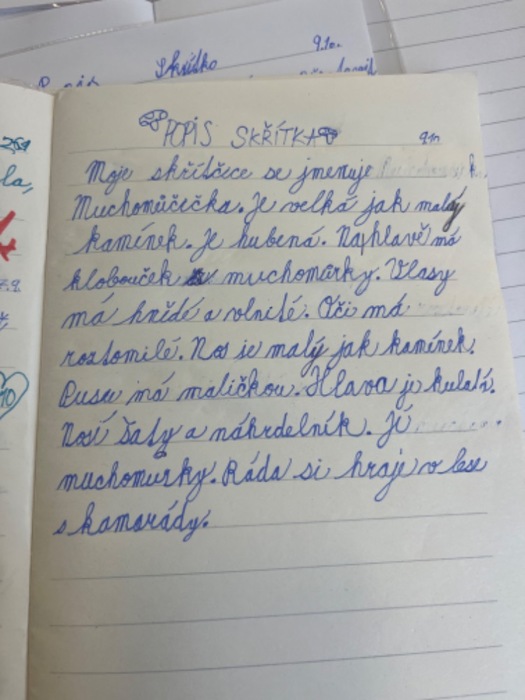 Skřítko 9.10.
POPIS SKŘÍTKA 9.10.
Moje skřítčice se jmenuje
Muchomůčečka. Je velká jak malý
kamínek. Je hubená. Najhlavě má
klobouček muchomůrky. Vlasy
má hnědé a vlnité. Oči má
roztomilé. Nos je malý jak kamínek.
Pusu má maličkou. Hlava je kulatá.
Nosí šaty a náhrdelník. Jí
muchomurky. Ráda si hraje v lese
s kamarády.
261
la,
7.9.
10